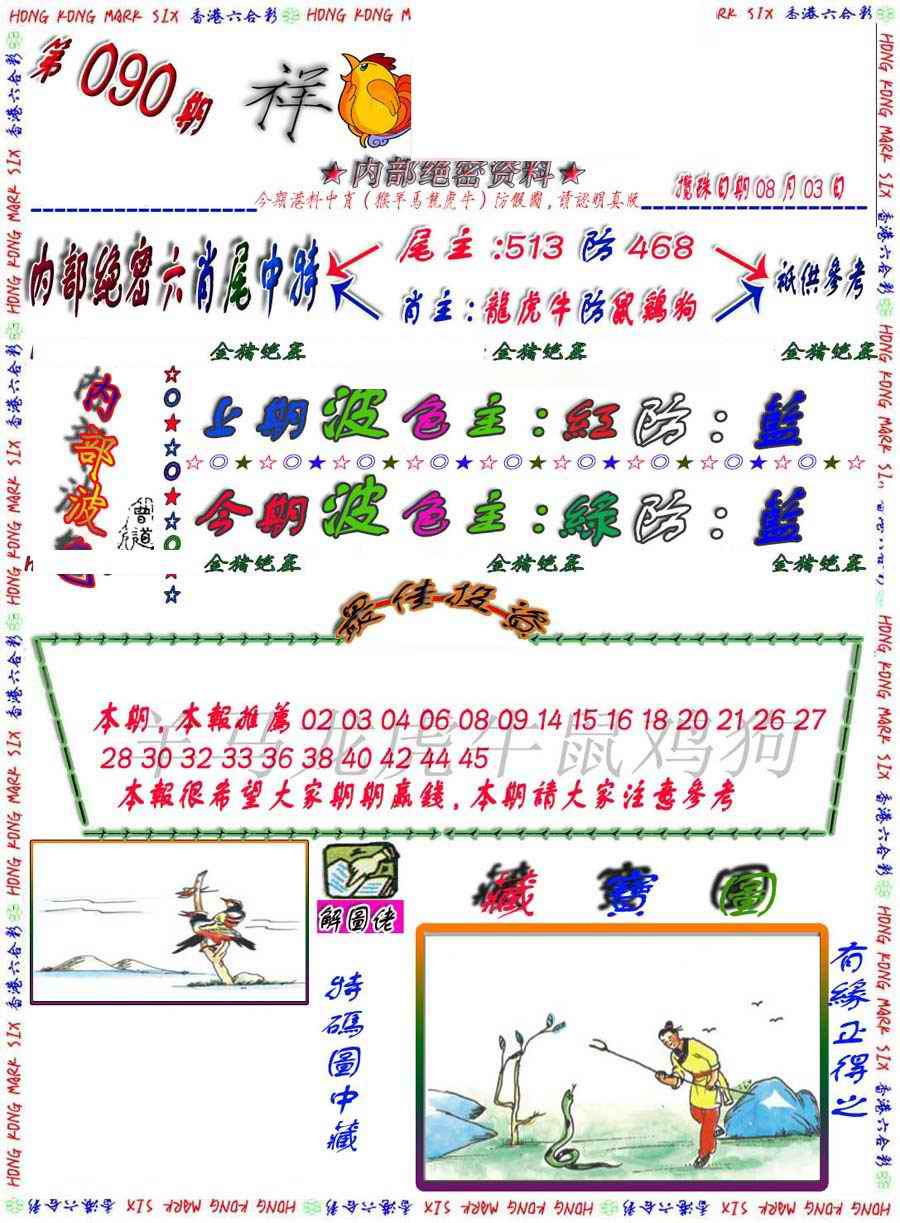 HONG KONG MARK SIX 香港六合彩 HONG KONG M
RK SIX 香港六合彩
第090期
祥
★内部绝密资料★
今期港料中肖（猴羊馬龍虎牛）防假圖，請認明真版
攪珠日期08月03日
内部绝密六肖尾中特
尾主:513防468
肖主:龍虎牛防鼠鷄狗
祇供參考
金猪绝密 金猪绝密 金猪绝密
内部波色
曾道
上期波色主:紅防:藍
今期波色主:綠防:藍
金猪绝密 金猪绝密 金猪绝密
最佳投
羊马龙虎牛鼠鸡狗
本期，本報推薦 02 03 04 06 08 09 14 15 16 18 20 21 26 27
28 30 32 33 36 38 40 42 44 45
本報很希望大家期期贏錢，本期請大家注意參考
解圖佬
特碼圖中藏
藏寶圖
有緣正得之
HONG KONG MARK SIX 香港六合彩